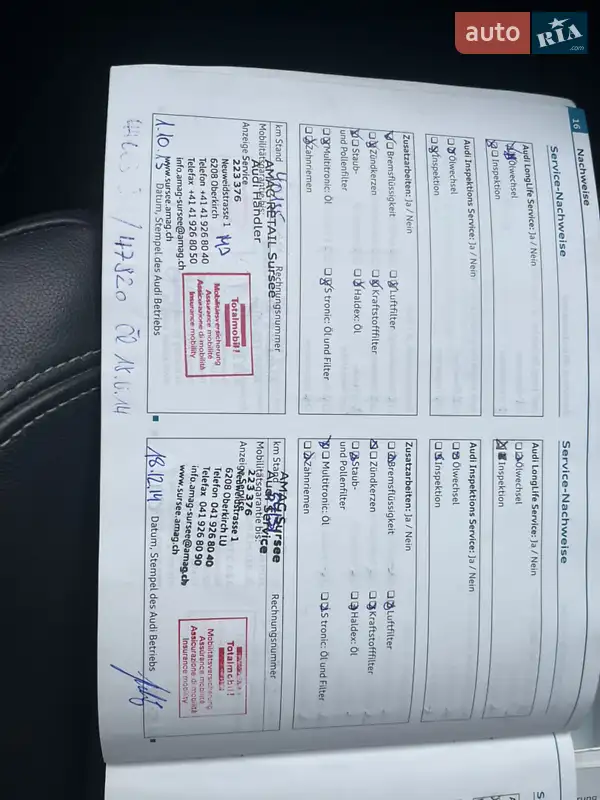 auto RIA .com
16
Nachweise
Service-Nachweise
Audi LongLife Service: Ja / Nein
Ölwechsel
Inspektion
Audi Inspektions Service: Ja / Nein
Ölwechsel
Inspektion
Zusatzarbeiten: Ja / Nein
Bremsflüssigkeit
Luftfilter
Zündkerzen
Kraftstofffilter
Staub-
und Pollenfilter
Haldex: Öl
Multitronic: Öl
S tronic: Öl und Filter
Zahnriemen
km Stand
Rechnungsnummer
AMAG RETAIL Sursee
Mobilitätsgarantie
Audi Händler
Anzeige Service
223 376
Neuweidstrasse 1
6208 Oberkirch
Telefon +41 41 926 80 40
Telefax +41 41 926 80 50
info.amag-sursee@amag.ch
www.sursee.amag.ch
Totalmobil!
Mobilitätsversicherung
Assurance mobilité
Assicurazione di mobilità
Insurance mobility
1.10.13
Datum, Stempel des Audi Betriebs
/ 47820 18.6.14
Service-Nachweise
Audi LongLife Service: Ja / Nein
Ölwechsel
Inspektion
Audi Inspektions Service: Ja / Nein
Ölwechsel
Inspektion
Zusatzarbeiten: Ja / Nein
Bremsflüssigkeit
Luftfilter
Zündkerzen
Kraftstofffilter
Staub-
und Pollenfilter
Haldex: Öl
Multitronic: Öl
S tronic: Öl und Filter
Zahnriemen
km Stand
Rechnungsnummer
AMAG Sursee
Audi Service
Mobilitätsgarantie bis:
223 376
Anzeige Service
Neuweidstrasse 1
6208 Oberkirch LU
Telefon 041 926 80 40
Telefax 041 926 80 90
info.amag-sursee@amag.ch
www.sursee.amag.ch
Totalmobil!
Mobilitätsversicherung
Assurance mobilité
Assicurazione di mobilità
Insurance mobility
18.12.14
Datum, Stempel des Audi Betriebs